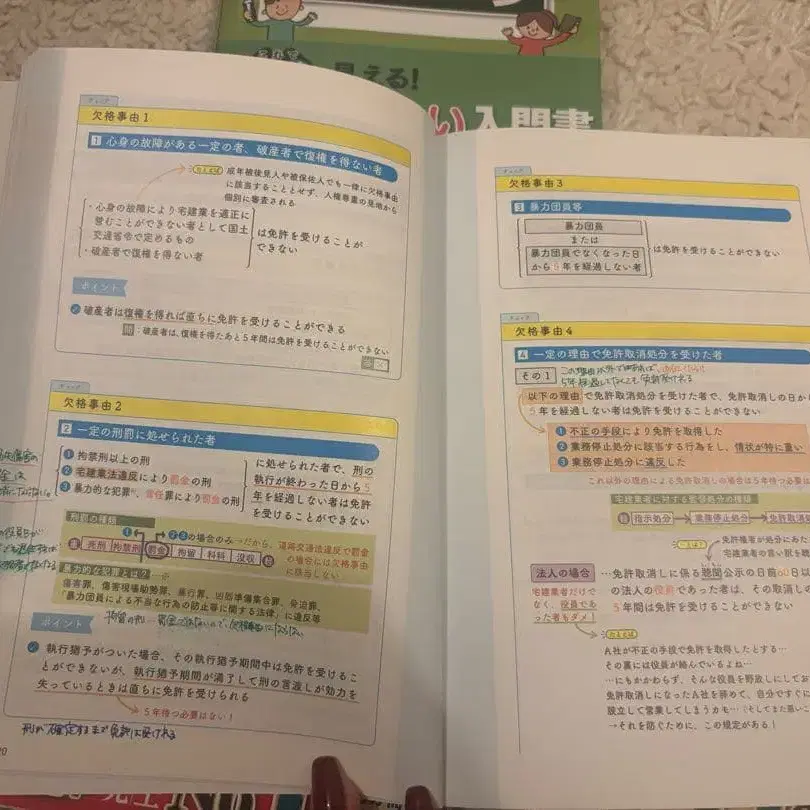 見える!
い入門書
チェック
欠格事由1
1 心身の故障がある一定の者、破産者で復権を得ない者
たとえば 成年被後見人や被保佐人でも一律に欠格事由
に該当することとせず、人権尊重の見地から
個別に審査される
・心身の故障により宅建業を適正に
営むことができない者として国土
交通省令で定めるもの
・破産者で復権を得ない者
は免許を受けることが
できない
ポイント
破産者は復権を得れば直ちに免許を受けることができる
例:破産者は、復権を得たあと5年間は免許を受けることができない
答 ×
チェック
欠格事由2
2 一定の刑罰に処せられた者
① 拘禁刑以上の刑
② 宅建業法違反により罰金の刑
③ 暴力的な犯罪※、背任罪により罰金の刑
に処せられた者で、刑の
執行が終わった日から5
年を経過しない者は免許
を受けることができない
刑罰の種類
① ②③の場合のみ→だから、道路交通法違反で罰金
の場合には欠格事由
に該当しない
重 死刑 拘禁刑 罰金 拘留 科料 没収 軽
暴力的な犯罪とは?…※
傷害罪、傷害現場助勢罪、暴行罪、凶器準備集合罪、脅迫罪、
「暴力団員による不当な行為の防止等に関する法律」に違反等
ポイント
執行猶予がついた場合、その執行猶予期間中は免許を受けるこ
とができないが、執行猶予期間が満了して刑の言渡しが効力を
失っているときは直ちに免許を受けられる
5年待つ必要はない!
刑が確定するまで免許は受けれる
20
チェック
欠格事由3
3 暴力団員等
暴力団員
または
暴力団員でなくなった日
から5年を経過しない者
は免許を受けることができない
チェック
欠格事由4
4 一定の理由で免許取消処分を受けた者
その1
5年経過してなくても免許受けれる
以下の理由で免許取消処分を受けた者で、免許取消しの日か
5年を経過しない者は免許を受けることができない
① 不正の手段により免許を取得した
② 業務停止処分に該当する行為をし、情状が特に重い
③ 業務停止処分に違反した
これ以外の理由による免許取消しの場合は5年待つ必要は
宅建業者に対する監督処分の種類
軽 指示処分 → 業務停止処分 → 免許取消処
免許権者が処分にあた
宅建業者の言い分を聴
法人の場合
…免許取消しに係る聴聞公示の日前60日以
の法人の役員であった者は、その取消しの
5年間は免許を受けることができない
宅建業者だけで
なく、役員であ
った者もダメ!
たとえば
A社が不正の手段で免許を取得したとする…
その裏には役員が絡んでいるよね…
…にもかかわらず、そんな役員を野放しにしてお
免許取消しになったA社を辞めて、自分ですぐに
設立して営業してしまうカモ…(そしてまた悪いこ
→それを防ぐために、この規定がある!